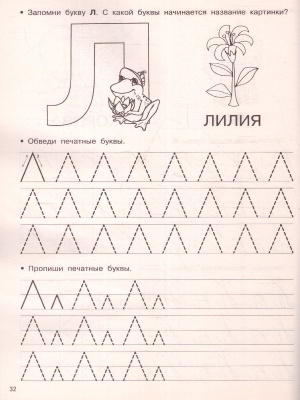 • Запомни букву Л. С какой буквы начинается название картинки?
Л
ЛИЛИЯ
• Обведи печатные буквы.
Л Л Л Л Л Л Л Л
Л Л Л Л Л Л Л Л
Л Л Л Л Л Л Л Л
• Пропиши печатные буквы.
Л л Л л Л л
Л л Л л Л л
Л л Л л Л л
32